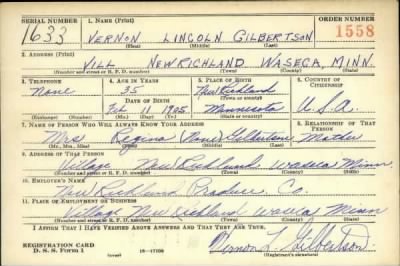 SERIAL NUMBER 1. NAME (Print) ORDER NUMBER
1633 VERNON LINCOLN GILBERTSON 1558
(First) (Middle) (Last)
2. ADDRESS (Print)
VILL NEW RICHLAND WASECA, MINN.
(Number and street or R. F. D. number) (Town) (County) (State)
3. TELEPHONE 4. AGE IN YEARS 5. PLACE OF BIRTH 6. COUNTRY OF CITIZENSHIP
None 35 New Richland
DATE OF BIRTH (Town or county)
Feb 11 1905 Minnesota U.S.A.
(Exchange) (Number) (Mo.) (Day) (Yr.) (State or country)
7. NAME OF PERSON WHO WILL ALWAYS KNOW YOUR ADDRESS 8. RELATIONSHIP OF THAT PERSON
Mrs Regina (None) Gilbertson Mother
(Mr., Mrs., Miss) (First) (Middle) (Last)
9. ADDRESS OF THAT PERSON
Village New Richland Waseca Minn
(Number and street or R. F. D. number) (Town) (County) (State)
10. EMPLOYER'S NAME
New Richland Produce Co.
11. PLACE OF EMPLOYMENT OR BUSINESS
Village New Richland Waseca Minn
(Number and street or R. F. D. number) (Town) (County) (State)
I AFFIRM THAT I HAVE VERIFIED ABOVE ANSWERS AND THAT THEY ARE TRUE.
REGISTRATION CARD
D. S. S. FORM 1 Vernon L. Gilbertson
(Registrant's signature)